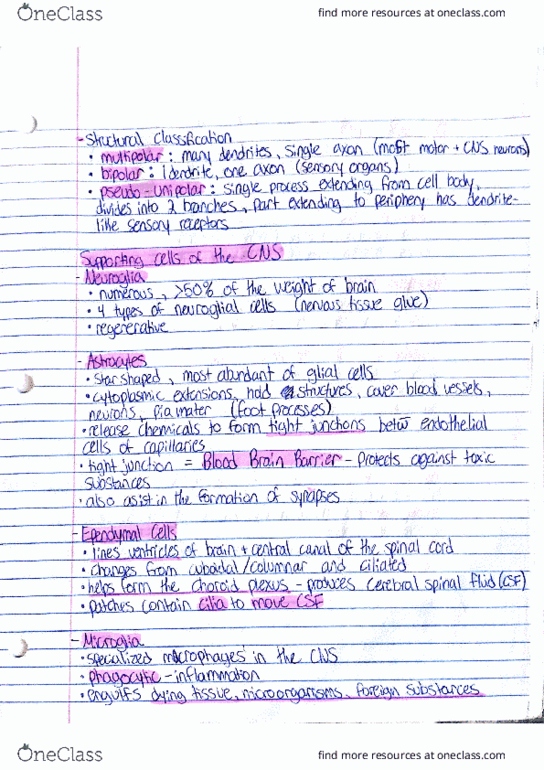 OneClass
find more resources at oneclass.com
- Structural Classification
• multipolar : many dendrites, single axon (most motor + CNS neurons)
• bipolar : 1 dendrite, one axon (sensory organs)
• pseudo-unipolar : single process extending from cell body,
divides into 2 branches, part extending to periphery has dendrite-
like sensory receptors
Supporting cells of the CNS
- Neuroglia
• numerous, >50% of the weight of brain
• 4 types of neuroglial cells (nervous tissue glue)
• regenerative
- Astrocytes
• star shaped, most abundant of glial cells
• cytoplasmic extensions, hold structures, cover blood vessels,
neurons, pia mater (foot processes)
• release chemicals to form tight junctions betw endothelial
cells of capillaries
• tight junction = Blood Brain Barrier - protects against toxic
substances
• also assist in the formation of synapses
- Ependymal Cells
• lines ventricles of brain + central canal of the spinal cord
• changes from cuboidal/columnar and ciliated
• helps form the choroid plexus - produces cerebral spinal fluid (CSF)
• patches contain cilia to move CSF
- Microglia
• specialized macrophages in the CNS
• phagocytic - inflammation
• engulfs dying tissue, microorganisms, foreign substances
OneClass
find more resources at oneclass.com